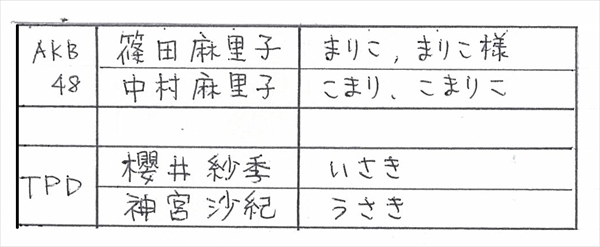 AKB 48 篠田麻里子 まりこ, まりこ様
中村麻里子 こまり、こまりこ
TPD 櫻井紗季 いさき
神宮沙紀 うさき